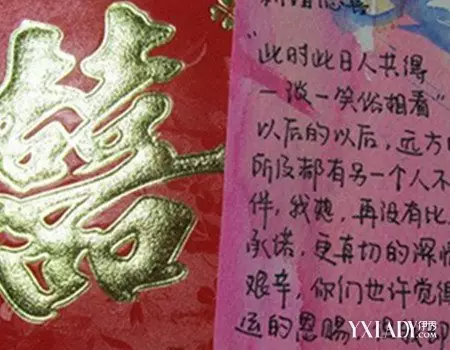 囍
"此时此日人共得
一波一笑俗相看"
以后的以后，远方
所及都有另一个人不
件，我想，再没有比
承诺，更真切的深情
艰辛，你们也许觉得
运的恩赐
YXLADY.伊秀